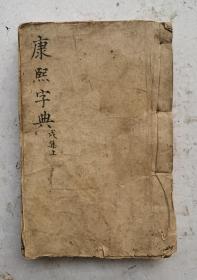 康熙字典
戌集上